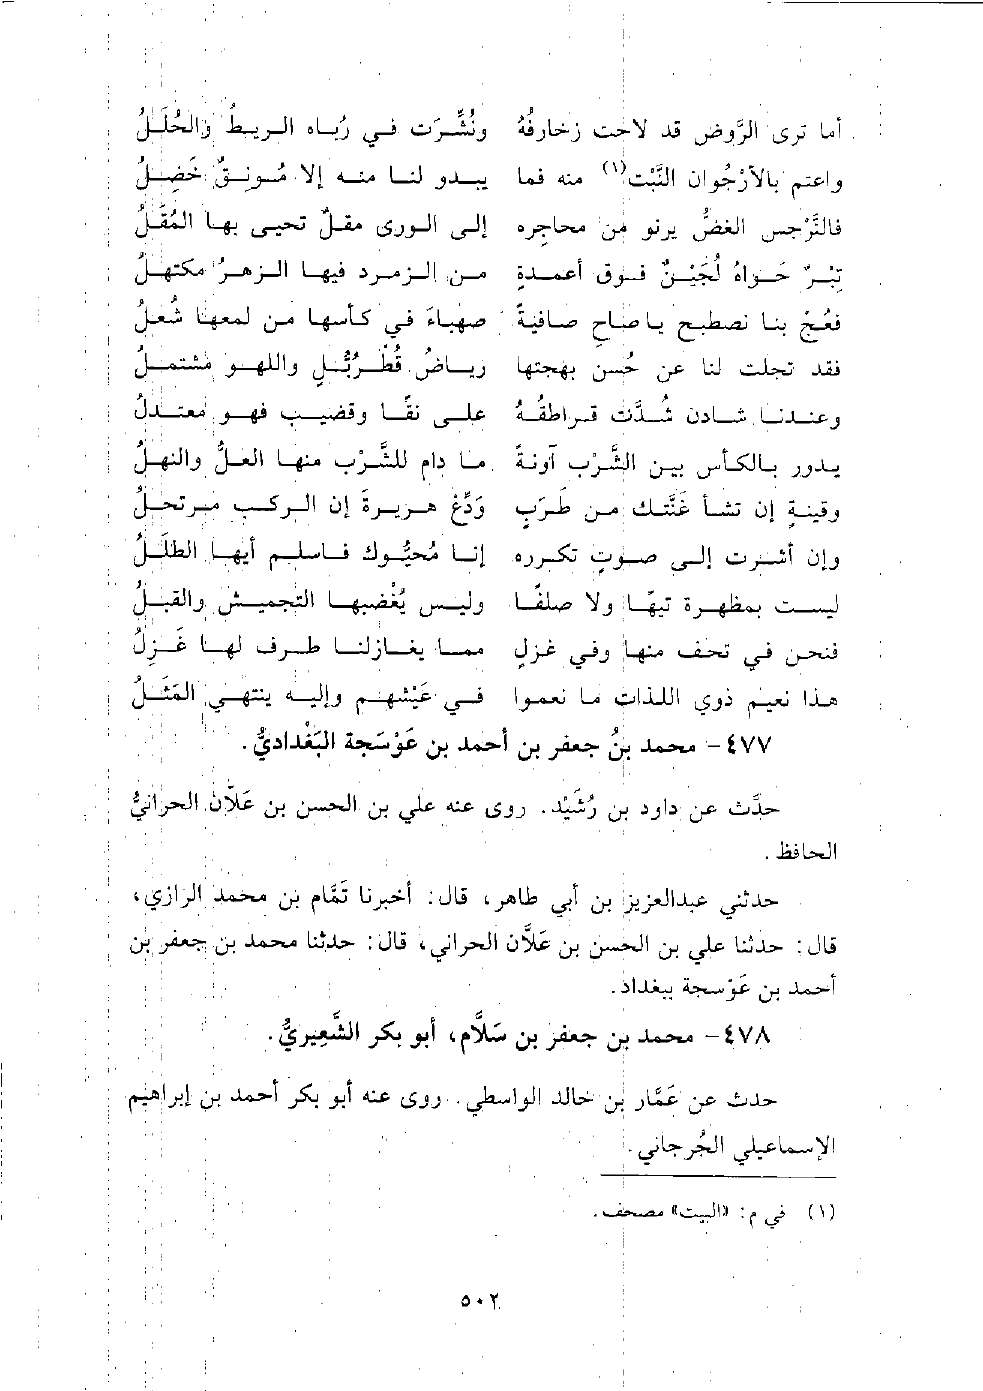 أما ترى الرَّوض قد لاحت زخارفُهُ ونُشِّرَت في رُباه الريطُ والحُلَلُ
واعتم بالأرْجُوان النَّبْت(١) منه فما يبدو لنا منه إلا مُونِقٌ خَضِلُ
فالنَّرْجس الغضُّ يرنو من محاجره إلى الورى مقلٌ تحيى بها المُقَلُ
تبْرٌ حَواهُ لُجَيْنٌ فوق أعمدةٍ من الزمرد فيها الزهرُ مكتهلُ
فعُجْ بنا نصطبح يا صاح صافيةً صهباءَ في كأسها من لمعها شُعلُ
فقد تجلت لنا عن حُسن بهجتها رياضُ قُطْرُبُّلٍ واللهو مشتملُ
وعندنا شادن شُدَّت قراطقُهُ على نقًا وقضيب فهو معتدلُ
يدور بالكأس بين الشَّرْب آونةً ما دام للشَّرْب منها العلُّ والنهلُ
وقينةٍ إن تشأ غَنَّتك من طَرَبٍ وَدِّعْ هريرةَ إن الركب مرتحلُ
وإن أشرت إلى صوتٍ تكرره إنا مُحيُّوك فاسلم أيها الطَّلَلُ
ليست بمظهرة تيهًا ولا صلفًا وليس يُغْضِبها التجميش والقبلُ
فنحن في تحف منها وفي غزلٍ مما يغازلنا طرف لها غَزِلُ
هذا نعيم ذوي اللذات ما نعموا في عَيْشهم وإليه ينتهي المَثَلُ
٤٧٧- محمد بنُ جعفر بن أحمد بن عَوْسَجة البَغْداديُّ.
حدَّث عن داود بن رُشَيْد. روى عنه علي بن الحسن بن عَلاَّن الحرانيُّ
الحافظ.
حدثني عبدالعزيز بن أبي طاهر، قال: أخبرنا تَمَّام بن محمد الرازي،
قال: حدثنا علي بن الحسن بن عَلاَّن الحراني، قال: حدثنا محمد بن جعفر بن
أحمد بن عَوْسجة ببغداد.
٤٧٨- محمد بن جعفر بن سَلاَّم، أبو بكر الشَّعِيريُّ.
حدث عن عَمَّار بن خالد الواسطي. روى عنه أبو بكر أحمد بن إبراهيم
الإسماعيلي الجُرجاني.
(١) في م: «البيت» مصحف.
٥٠٢